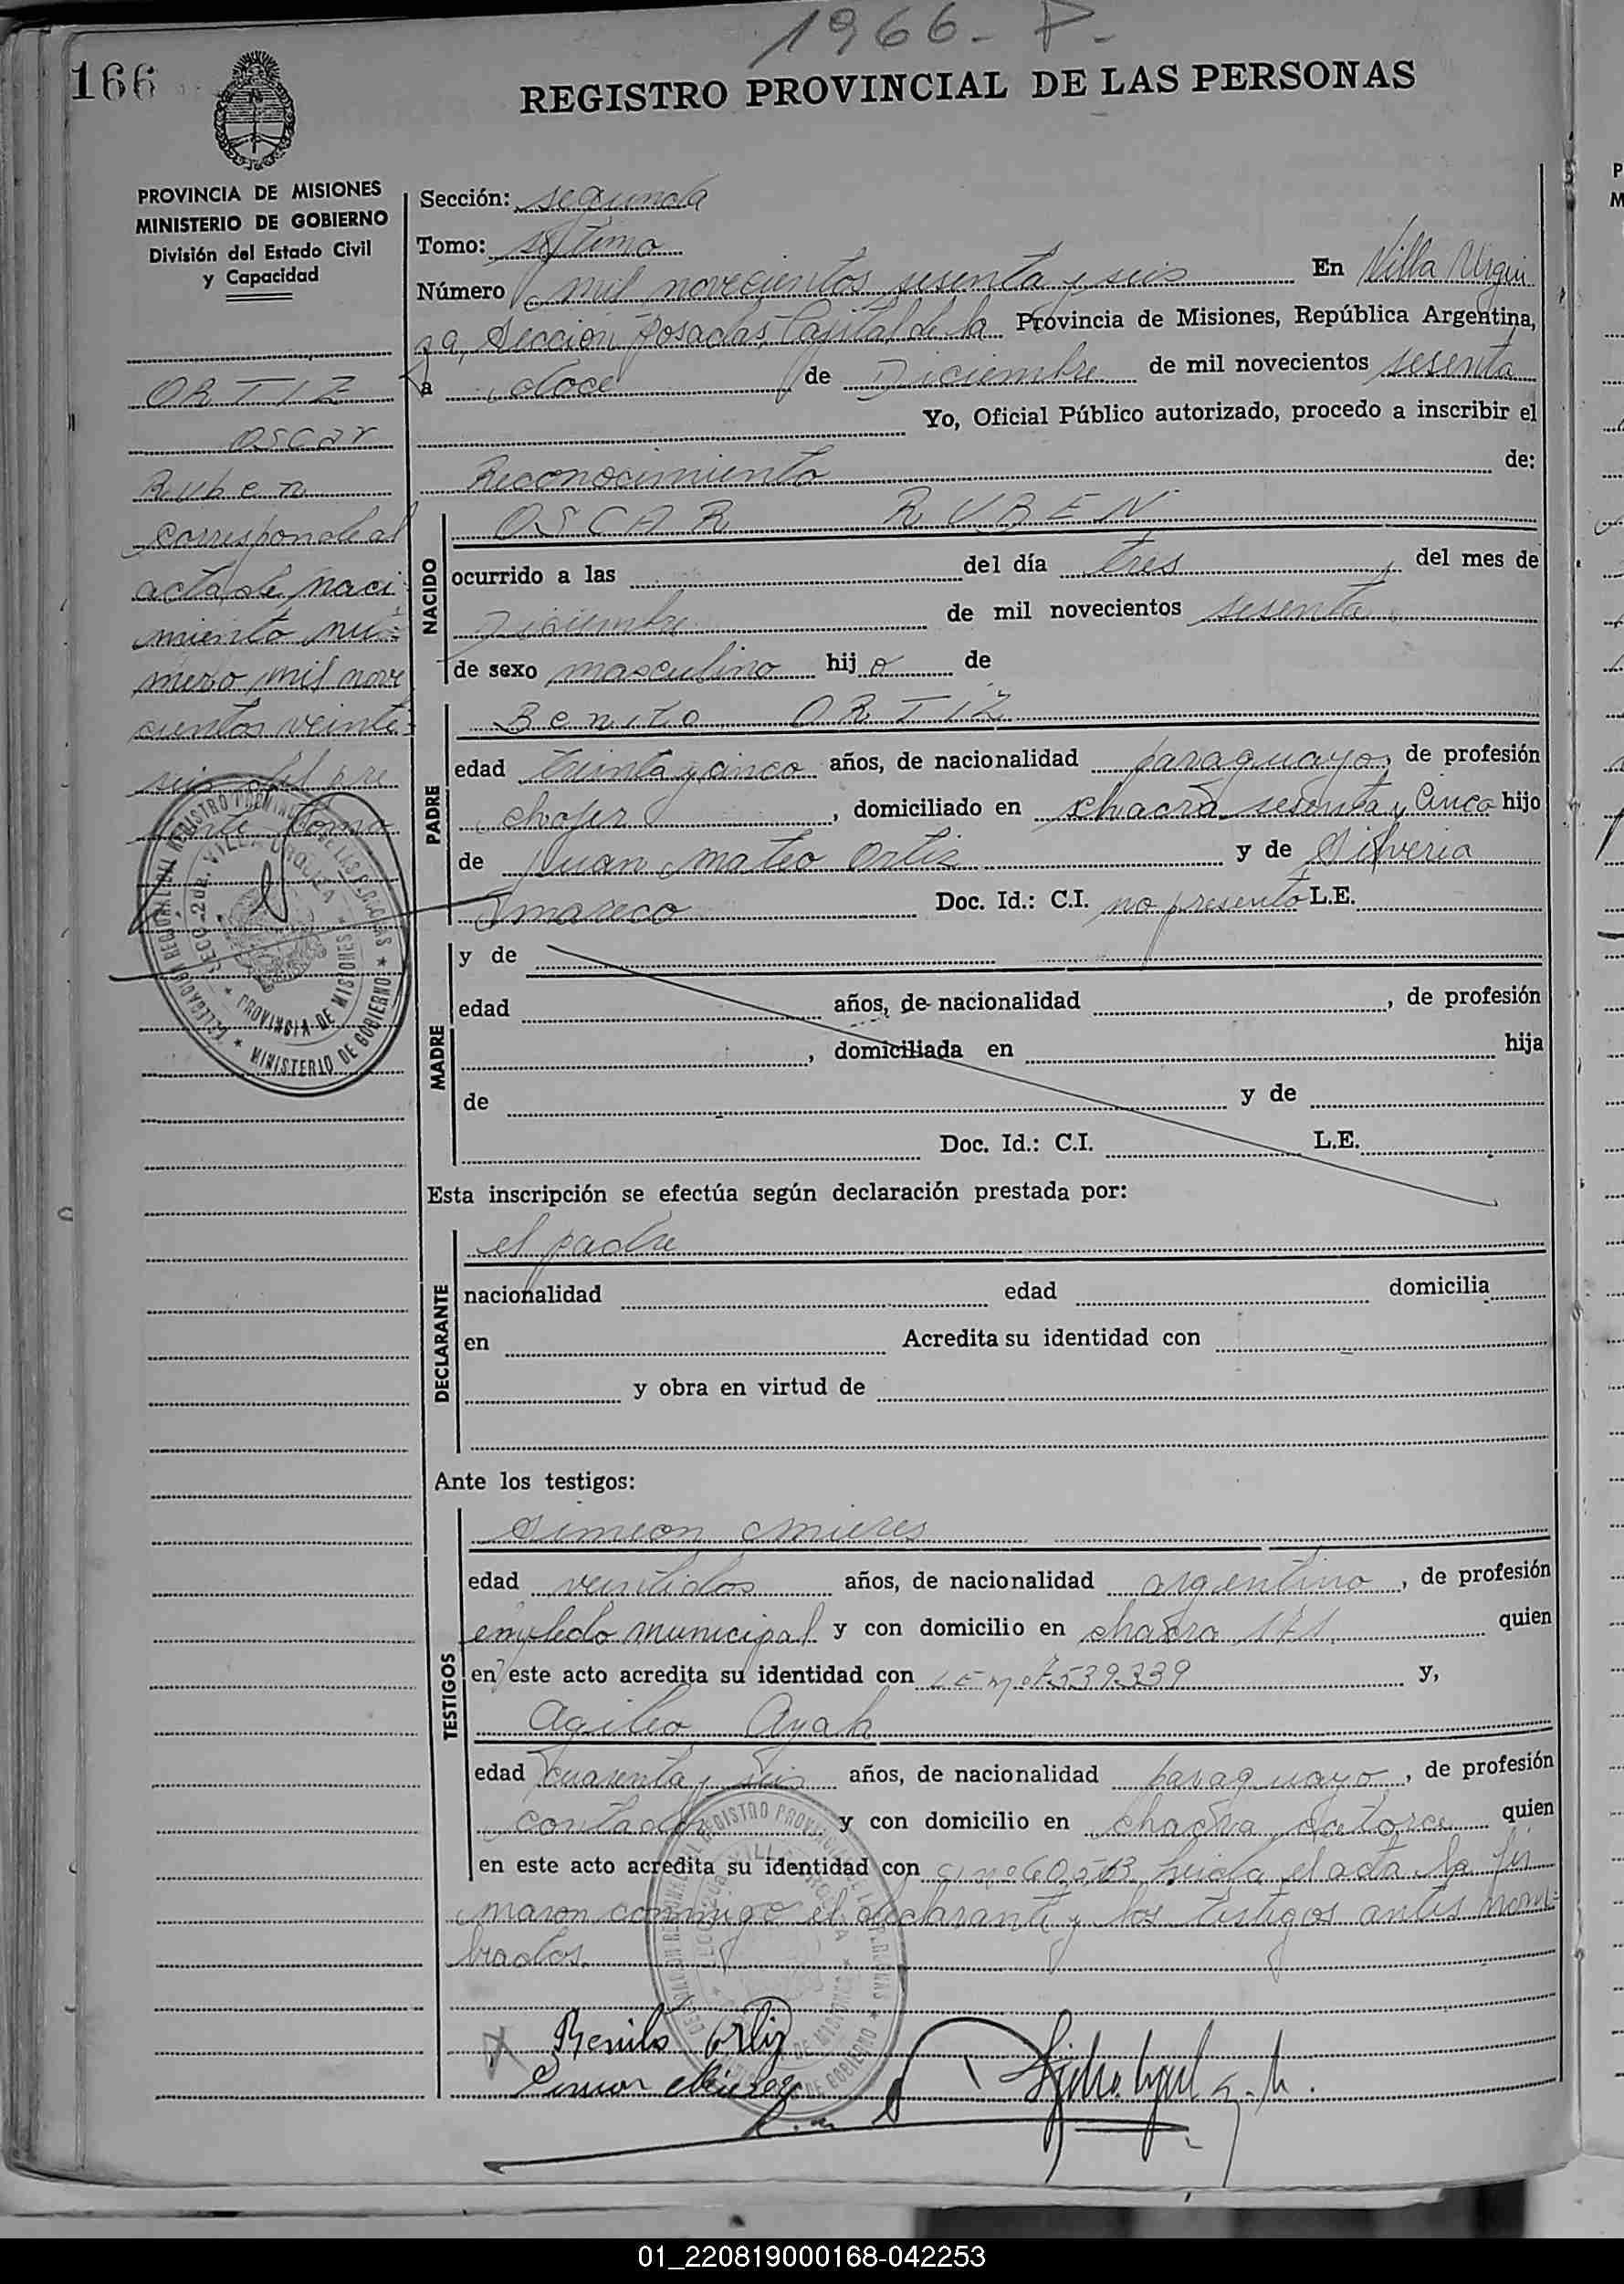 1966. P.
166
REGISTRO PROVINCIAL DE LAS PERSONAS
PROVINCIA DE MISIONES
MINISTERIO DE GOBIERNO
División del Estado Civil
y Capacidad
ORTIZ
Oscar
Ruben
corresponde al
acta de naci
miento nú=
mero mil nove
cientos veinti=
seis del pre
sente tomo
DELEGACION REGIONAL DEL REGISTRO PROVINCIAL DE LAS PERSONAS * MINISTERIO DE GOBIERNO *
SECC. 2da. VILLA URQUIZA * PROVINCIA DE MISIONES *
Sección: segunda
Tomo: séptimo
Número mil novecientos sesenta y seis En Villa Urqui
za, Sección Posadas, Capital de la Provincia de Misiones, República Argentina,
a doce de Diciembre de mil novecientos sesenta
Yo, Oficial Público autorizado, procedo a inscribir el
Reconocimiento de:
NACIDO
OSCAR RUBEN
ocurrido a las del día tres del mes de
Diciembre de mil novecientos sesenta
de sexo masculino hijo de
PADRE
Benito ORTIZ
edad treinta y cinco años, de nacionalidad paraguayo, de profesión
chofer, domiciliado en chacra sesenta y cinco hijo
de Juan Mateo Ortiz y de Silveria
Amareco Doc. Id.: C.I. no presento L.E.
MADRE
y de
edad años, de nacionalidad , de profesión
, domiciliada en hija
de y de
Doc. Id.: C.I. L.E.
Esta inscripción se efectúa según declaración prestada por:
DECLARANTE
el padre
nacionalidad edad domicilia
en Acredita su identidad con
y obra en virtud de
Ante los testigos:
TESTIGOS
Simeon Mieres
edad veintidos años, de nacionalidad argentino, de profesión
empledo municipal y con domicilio en chacra 171 quien
en este acto acredita su identidad con LE nº 7539339 y,
Agileo Ayah
edad cuarenta y seis años, de nacionalidad paraguayo, de profesión
contador y con domicilio en chacra catorce quien
en este acto acredita su identidad con CI nº leida el acta la fir
maron conmigo el declarante y los testigos antes nom=
brados.
Benito Ortiz
01_220819000168-042253